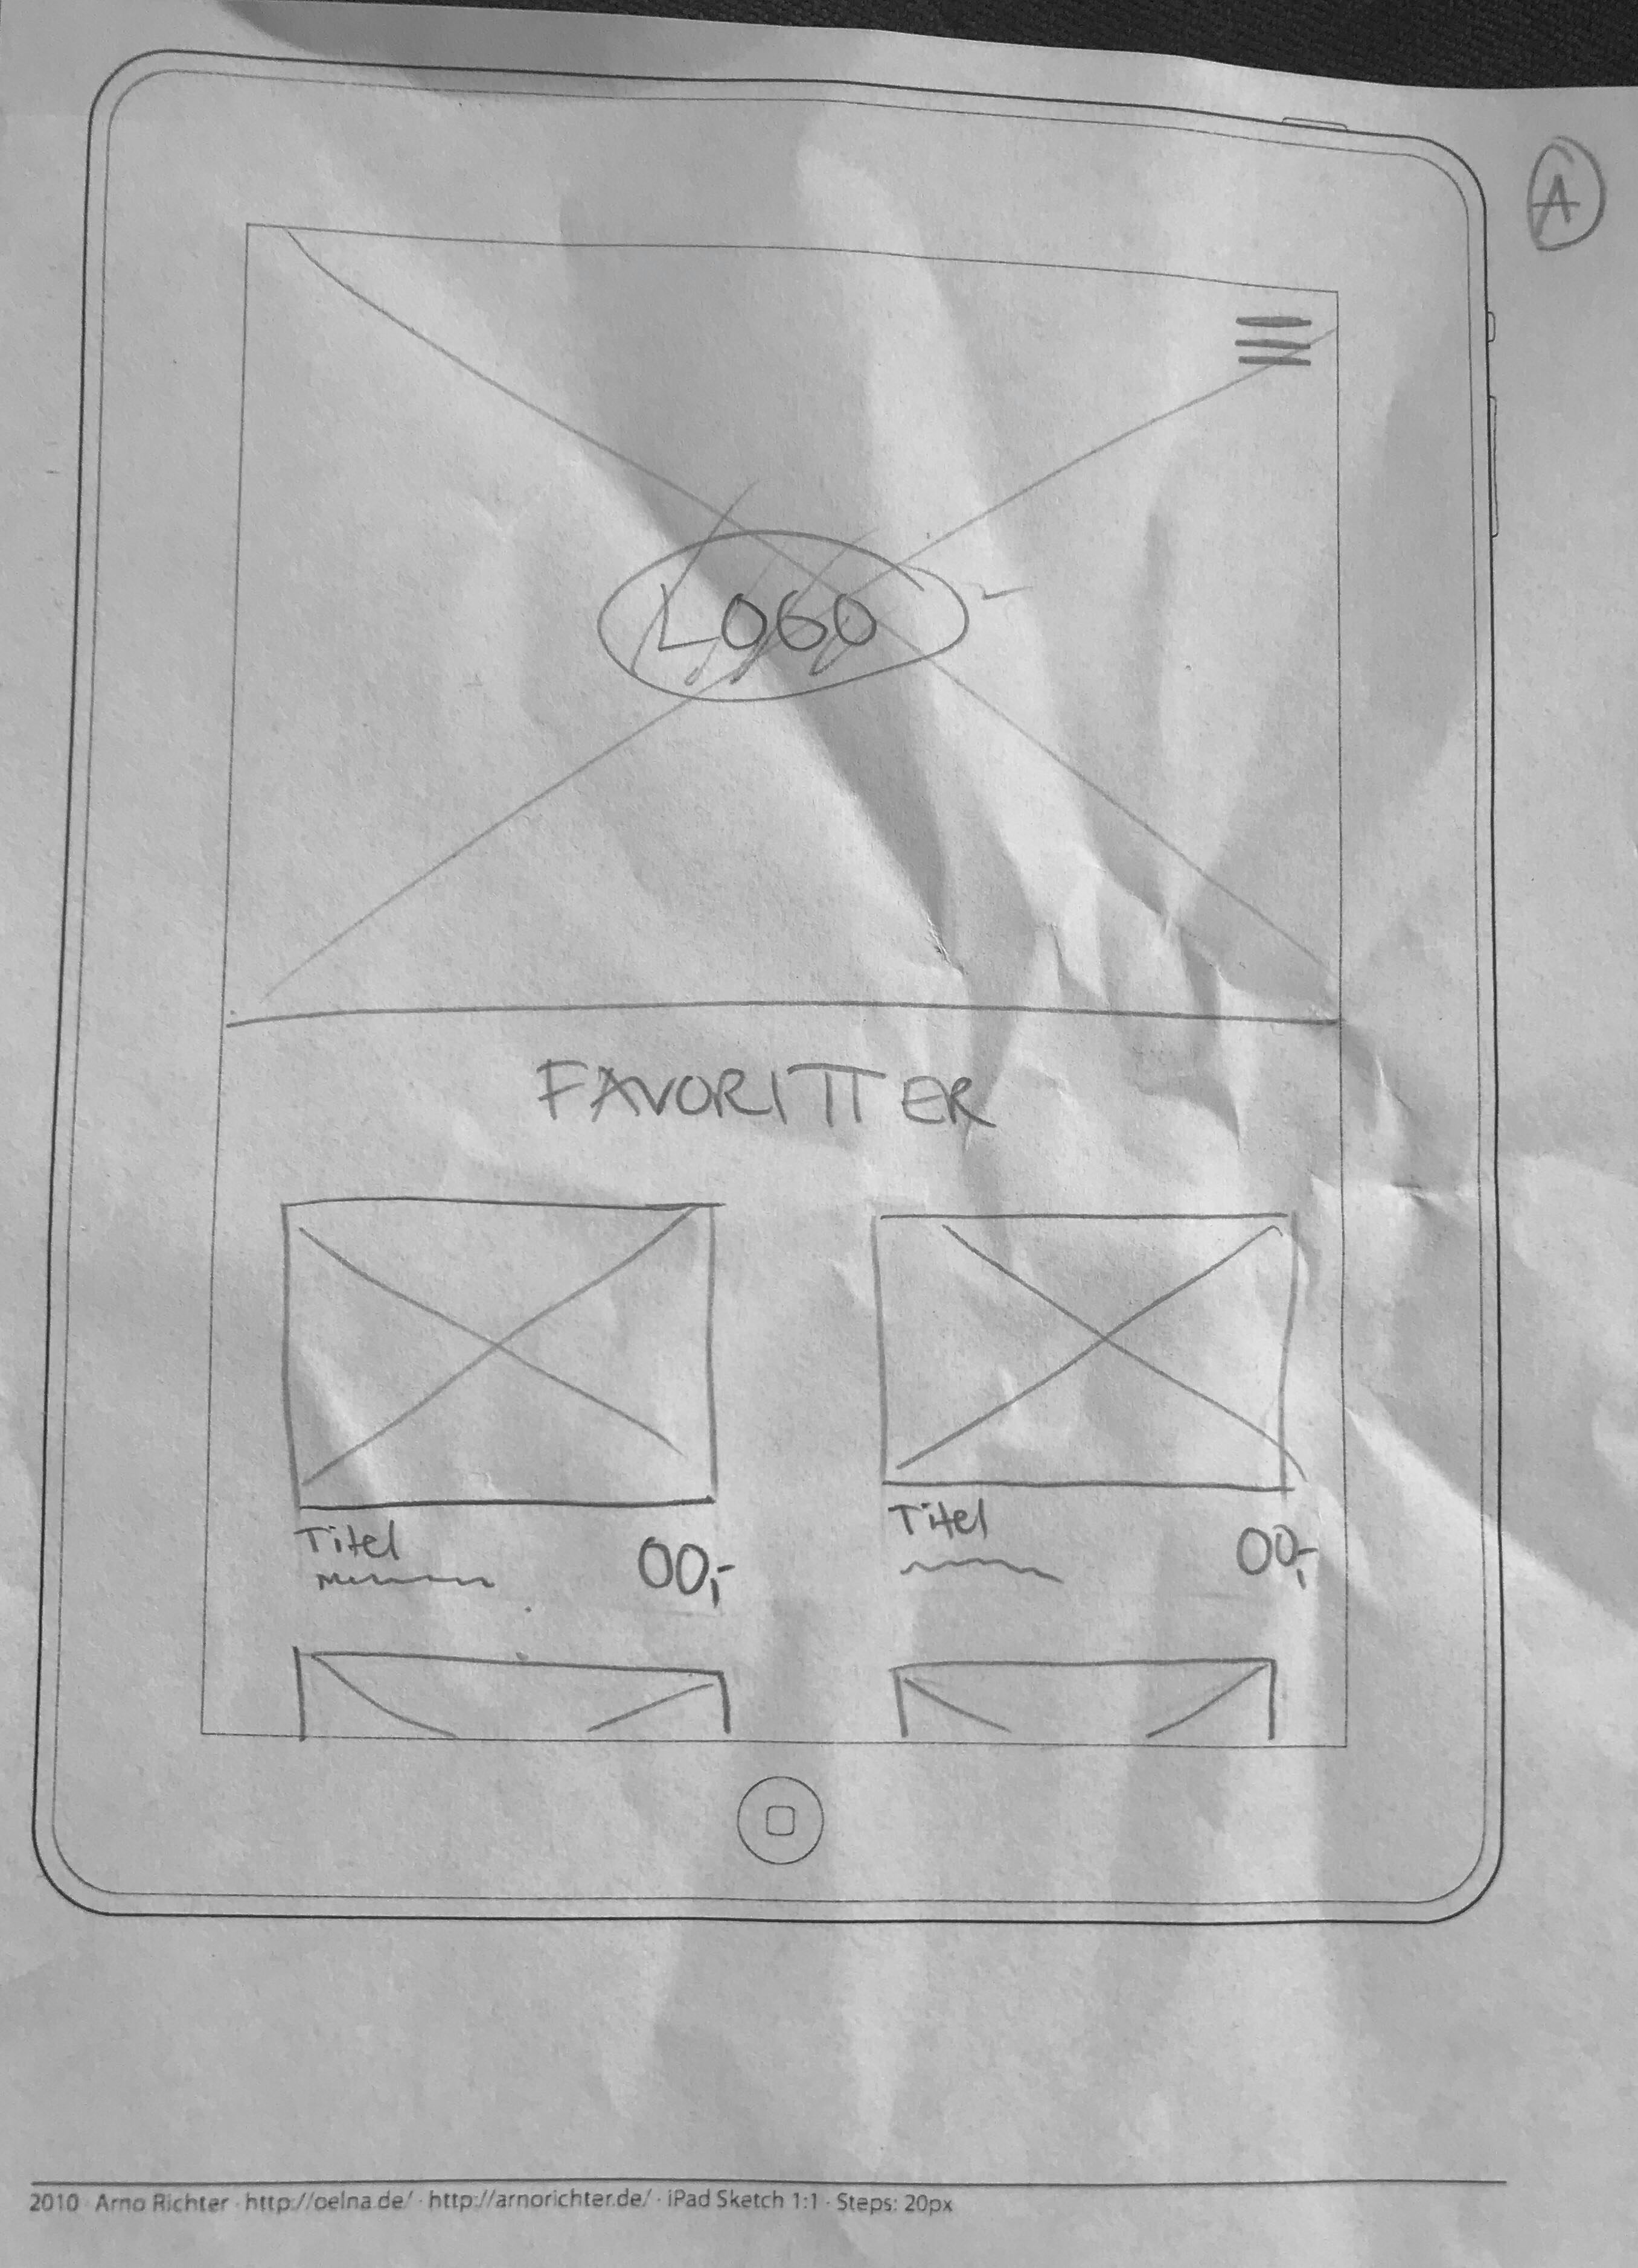 A
LOGO
FAVORITTER
Titel
00,-
Titel
00,-
2010 · Arno Richter · http://oelna.de/ · http://arnorichter.de/ · iPad Sketch 1:1 · Steps: 20px